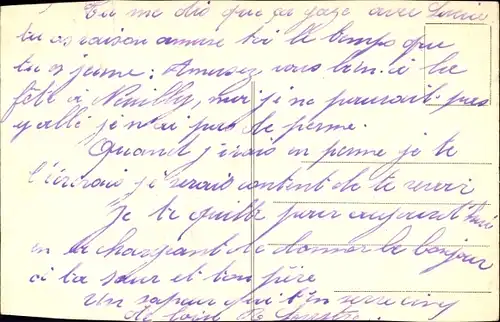 Tu me dis que ça gaze avec Lucie
tu as raison amuse toi le temps que
tu es jeune. Amusez vous bien à la
fête à Neuilly, moi je ne pourrait pas
y allé je n'ai pas de perme.
Quand j'irais en perme je te
l'écrirais je serais content de te revoir
Je te quitte pour aujourd'hui
en te chargeant de donner le bonjour
à ta sœur et ton père
Un sapeur qui t'en serre cinq
de loin